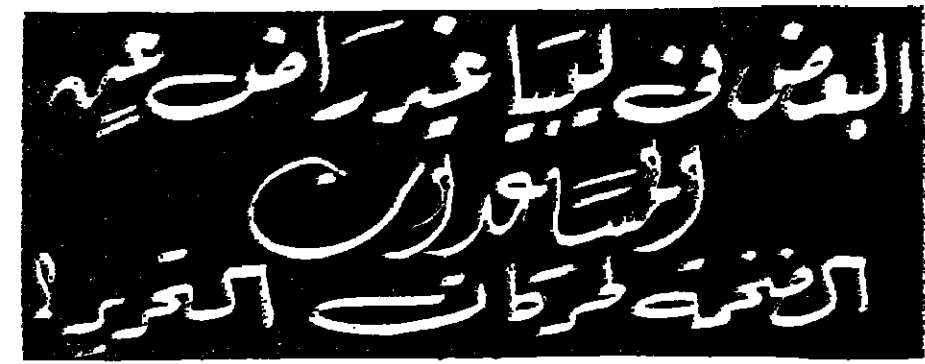 البعض فى ليبيا غير راض عن
المساعدات
الضخمة لحركات التحرير !